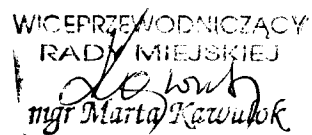 WICEPRZEWODNICZĄCY
RADY MIEJSKIEJ
mgr Marta Kawulok